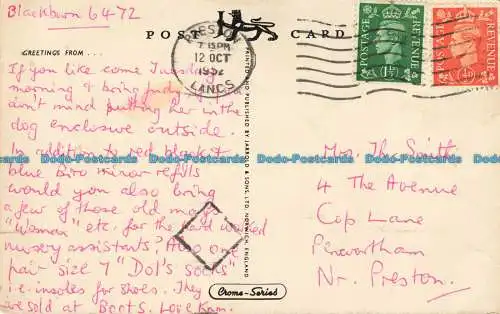 Blackburn 6472
POST CARD
PRESTON
7.15PM
12 OCT
1952
LANCS
POSTAGE
REVENUE
1½D
POSTAGE
REVENUE
GREETINGS FROM...
If you like come Tuesday
morning & bring Judy if you
don't mind putting her in the
dog enclosure outside.
In addition to red blanket
blue Biro minor refills
would you also bring
a few of those old mags
"Woman" etc. for the hard worked
nursery assistants? Also one
pair size 7 "Dol's socks"
i.e. insoles for shoes. They
are sold at Boots. Love
Mrs. The Smith
4 The Avenue
Cop Lane
Penwortham
Nr. Preston.
PRINTED AND PUBLISHED BY JARROLD & SONS, LTD. NORWICH, ENGLAND
Crome-Series
Dodo-Postcards Dodo-Postcards Dodo-Postcards Dodo-Postcards Dodo-Postcards